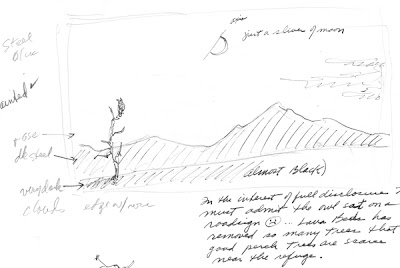 Steel
blue
just a sliver of moon
rose
(almost Black)
clouds edge w/ rose
In the interest of full disclosure I
must admit the owl sat on a
roadsign ☹ ... Lava Beds has
removed so many trees that
good perch trees are scarce
near the refuge.